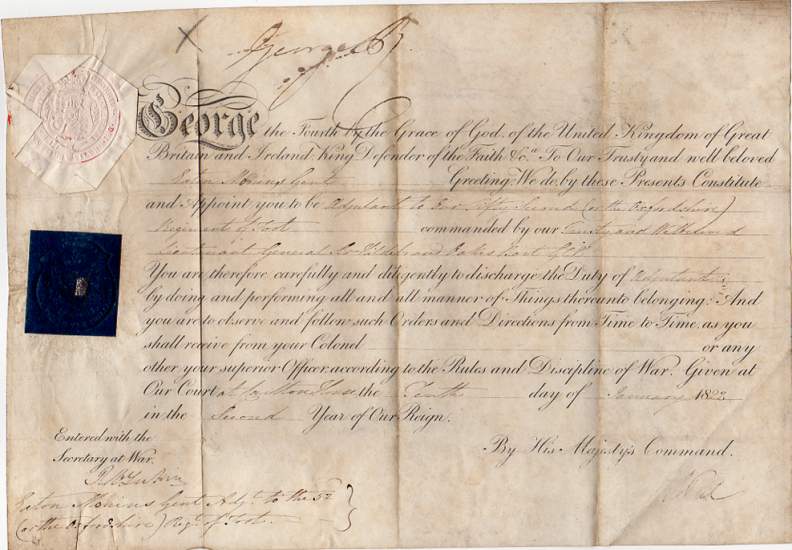 George R.
George the Fourth by the Grace of God, of the United Kingdom of Great
Britain and Ireland King, Defender of the Faith &c.a To Our Trusty and well beloved
Eaton Monins Gent Greeting: We do, by these Presents Constitute
and Appoint you to be Adjutant to Our Fifty Second (or the Oxfordshire)
Regiment of Foot commanded by our Trusty and Wellbeloved
Lieutenant General Sir Hildebrand Oakes Bart GCB
You are therefore carefully and diligently to discharge the Duty of Adjutant
by doing and performing all and all manner of Things thereunto belonging: And
you are to observe and follow such Orders and Directions from Time to Time, as you
shall receive from your Colonel or any
other your superior Officer, according to the Rules and Discipline of War. Given at
Our Court at Carlton House, the Tenth day of January 1822
in the Second Year of Our Reign.
Entered with the
Secretary at War.
By His Majesty's Command.
Eaton Monins Gent Adjt. to the 52
(or the Oxfordshire) Regt. of Foot.